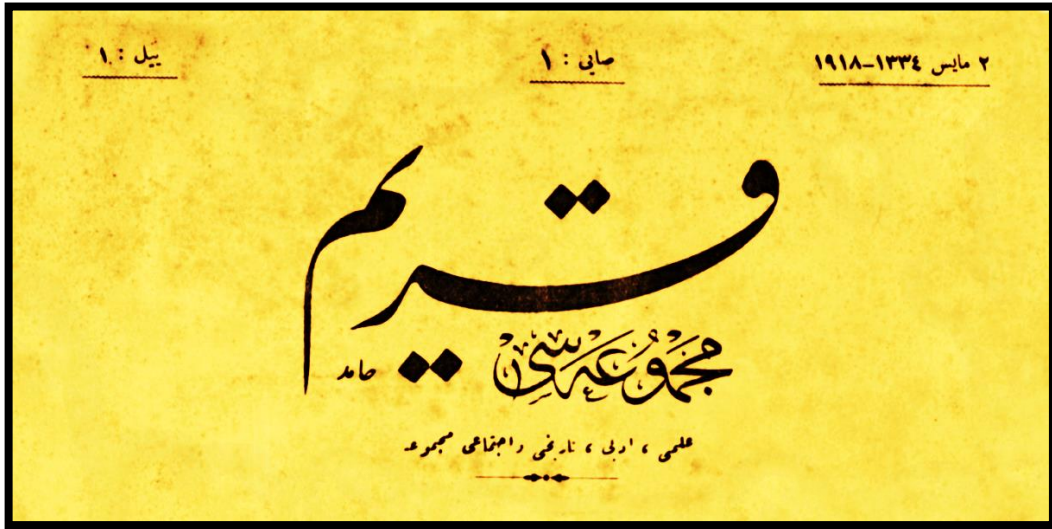 ٢ مايس ١٣٣٤-١٩١٨ صايى : ١ ييل : ١
قريم
مجموعه‌سى
حامد
علمى ، ادبى ، تاريخى واجتماعى مجموعه